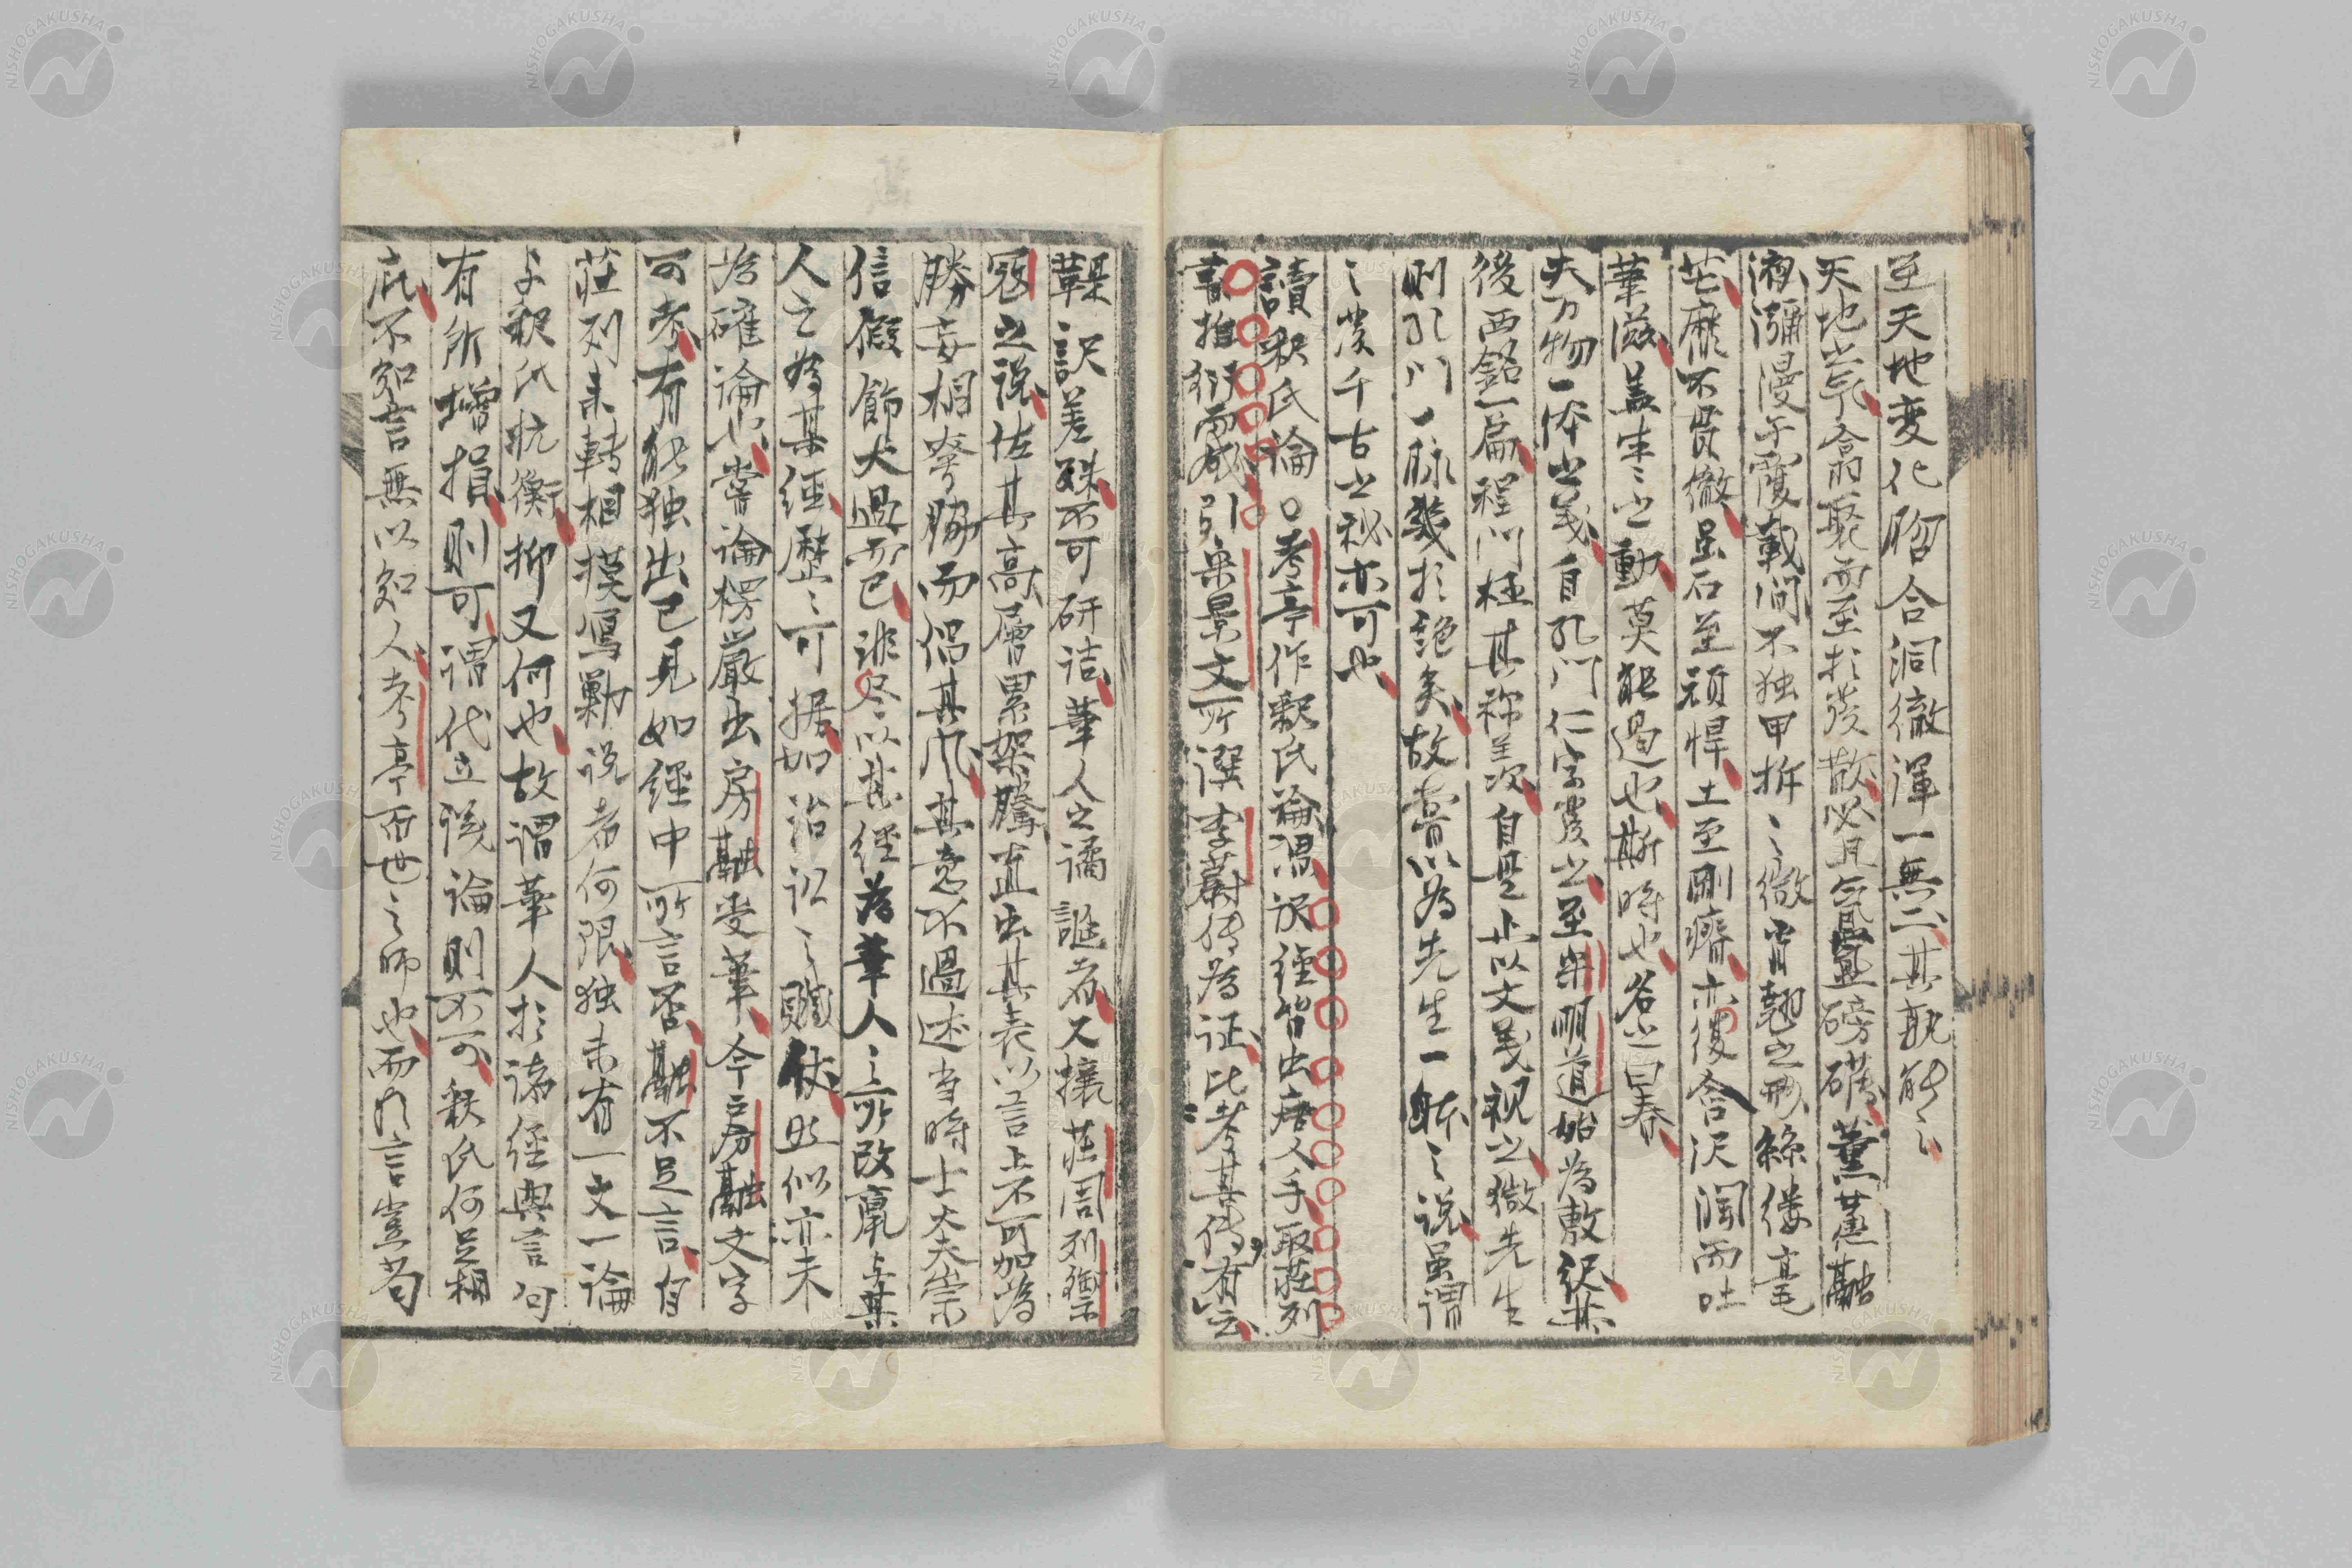 至天地変化脗合洞徹渾一無二其孰能之
天地出气翕而聚而至於發散必且氤氳磅礴薫蒸融
液瀰漫于覆載間不独甲拆之微宵翹之形絲縷毫
芒靡不貫徹虽石至頑悍土至剛瘠亦復含沢潤而吐
華滋盖生々之動莫能遏也斯時也名之曰春
夫万物一体之義自孔門仁字发之至宋明道始為敷繹其
後西銘一篇程門極其称美次自是止以文義視之微先生
則孔門一脉幾於絶矣故嘗以為先生一体之説虽謂
之发千古之秘亦可也
讀釈氏論 考亭作釈氏論謂訳経皆出唐人手取荘列
書推衍而成引宋景文所譔李蔚传為证比考其传有云
鞮訳差殊不可研詰華人之譎誕者又攘荘周列禦
寇之説佐其高層累架騰直出其表以言上不可加為
勝妄相夸脇而倡其风其意不過述当時士大夫崇
信假飾太過而已非尽以其経為華人之所改竄与某
人之為某経歴々可据如治訟之贓仗必似亦未
為確論也嘗論楞厳出房融受筆今房融文字
可考有能独出己見如経中所言否融不足言自
荘列来轉相摸寫勦説者何限独未有一文一論
与釈氏抗衡抑又何也故謂華人於諸経與言句
有所増損則可謂代立议論則不可釈氏何足相
庇不知言無以知人考亭百世之師也而乃言豈苟